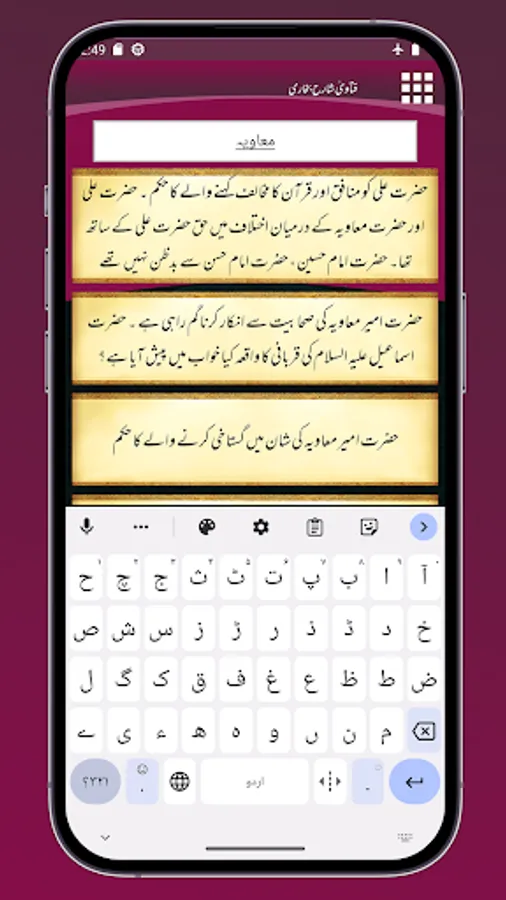 2:49
فتاویٰ شارح بخاری
معاویہ
حضرت علی کو منافق اور قرآن کا مخالف کہنے والے کا حکم ۔ حضرت علی
اور حضرت معاویہ کے درمیان اختلاف میں حق حضرت علی کے ساتھ
تھا۔ حضرت امام حسین، حضرت امام حسن سے بدظن نہیں تھے
حضرت امیر معاویہ کی صحابیت سے انکار کرنا گم راہی ہے ۔ حضرت
اسماعیل علیہ السلام کی قربانی کا واقعہ کیا خواب میں پیش آیا ہے؟
حضرت امیر معاویہ کی شان میں گستاخی کرنے والے کا حکم
آ ا ب پ ت ٹ ث ج چ ح
خ د ڈ ذ ر ڑ ز س ش ص
ض ط ظ ع غ ف ق ک گ ل
م ن ں و ہ ھ ء ی ے
۔ اردو ، ؟۳۲۱